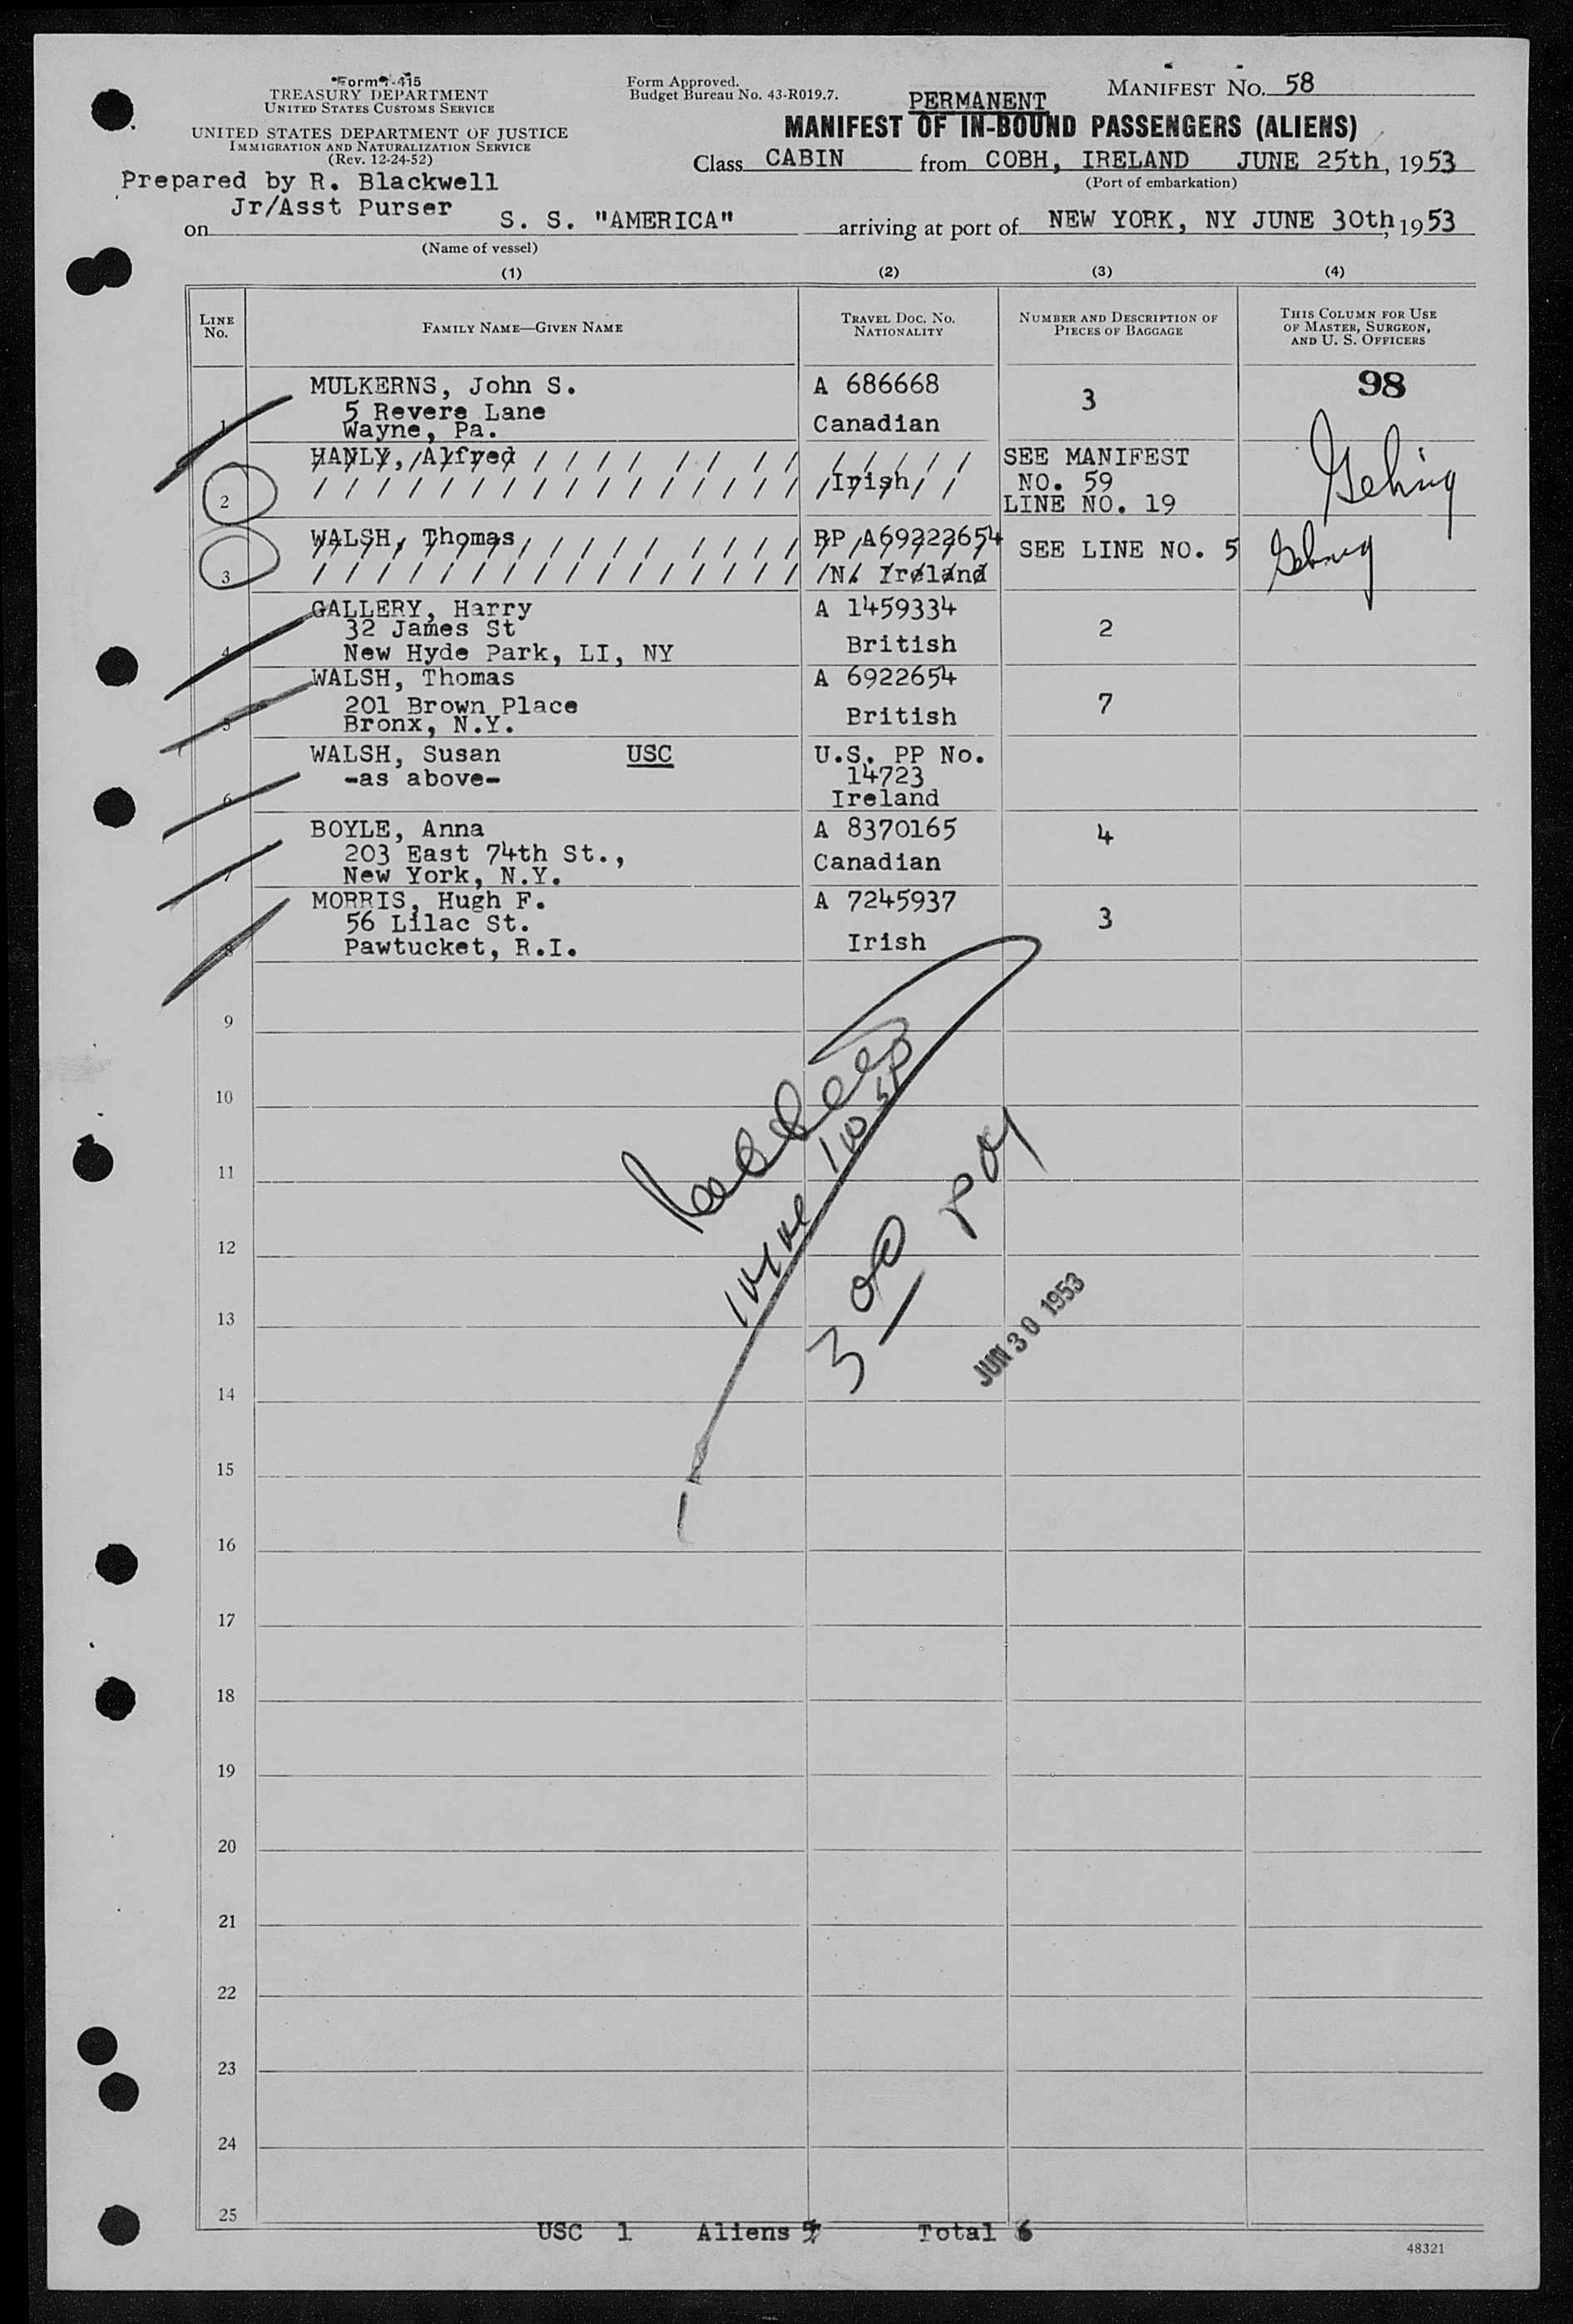 Form I-415
TREASURY DEPARTMENT
UNITED STATES CUSTOMS SERVICE
UNITED STATES DEPARTMENT OF JUSTICE
IMMIGRATION AND NATURALIZATION SERVICE
(Rev. 12-24-52)
Form Approved.
Budget Bureau No. 43-R019.7.
MANIFEST NO. 58
PERMANENT
MANIFEST OF IN-BOUND PASSENGERS (ALIENS)
Class CABIN from COBH, IRELAND JUNE 25th, 1953
(Port of embarkation)
Prepared by R. Blackwell
Jr/Asst Purser
on S. S. "AMERICA" arriving at port of NEW YORK, NY JUNE 30th, 1953
(Name of vessel)
(1) (2) (3) (4)
LINE NO. FAMILY NAME—GIVEN NAME TRAVEL DOC. NO. NATIONALITY NUMBER AND DESCRIPTION OF PIECES OF BAGGAGE THIS COLUMN FOR USE OF MASTER, SURGEON, AND U. S. OFFICERS
1 MULKERNS, John S. A 686668 3 98
5 Revere Lane
Wayne, Pa. Canadian
2 HANLY, Alfred Irish SEE MANIFEST
NO. 59
LINE NO. 19
3 WALSH, Thomas RP A69222654 SEE LINE NO. 5
N. Ireland
4 GALLERY, Harry A 1459334 2
32 James St
New Hyde Park, LI, NY British
5 WALSH, Thomas A 6922654 7
201 Brown Place
Bronx, N.Y. British
6 WALSH, Susan USC U.S. PP No.
-as above- 14723
Ireland
7 BOYLE, Anna A 8370165 4
203 East 74th St.,
New York, N.Y. Canadian
8 MORRIS, Hugh F. A 7245937 3
56 Lilac St.
Pawtucket, R.I. Irish
9
10
11
12
13
JUN 30 1953
14
15
16
17
18
19
20
21
22
23
24
25
USC 1 Aliens 5 Total 6
48321